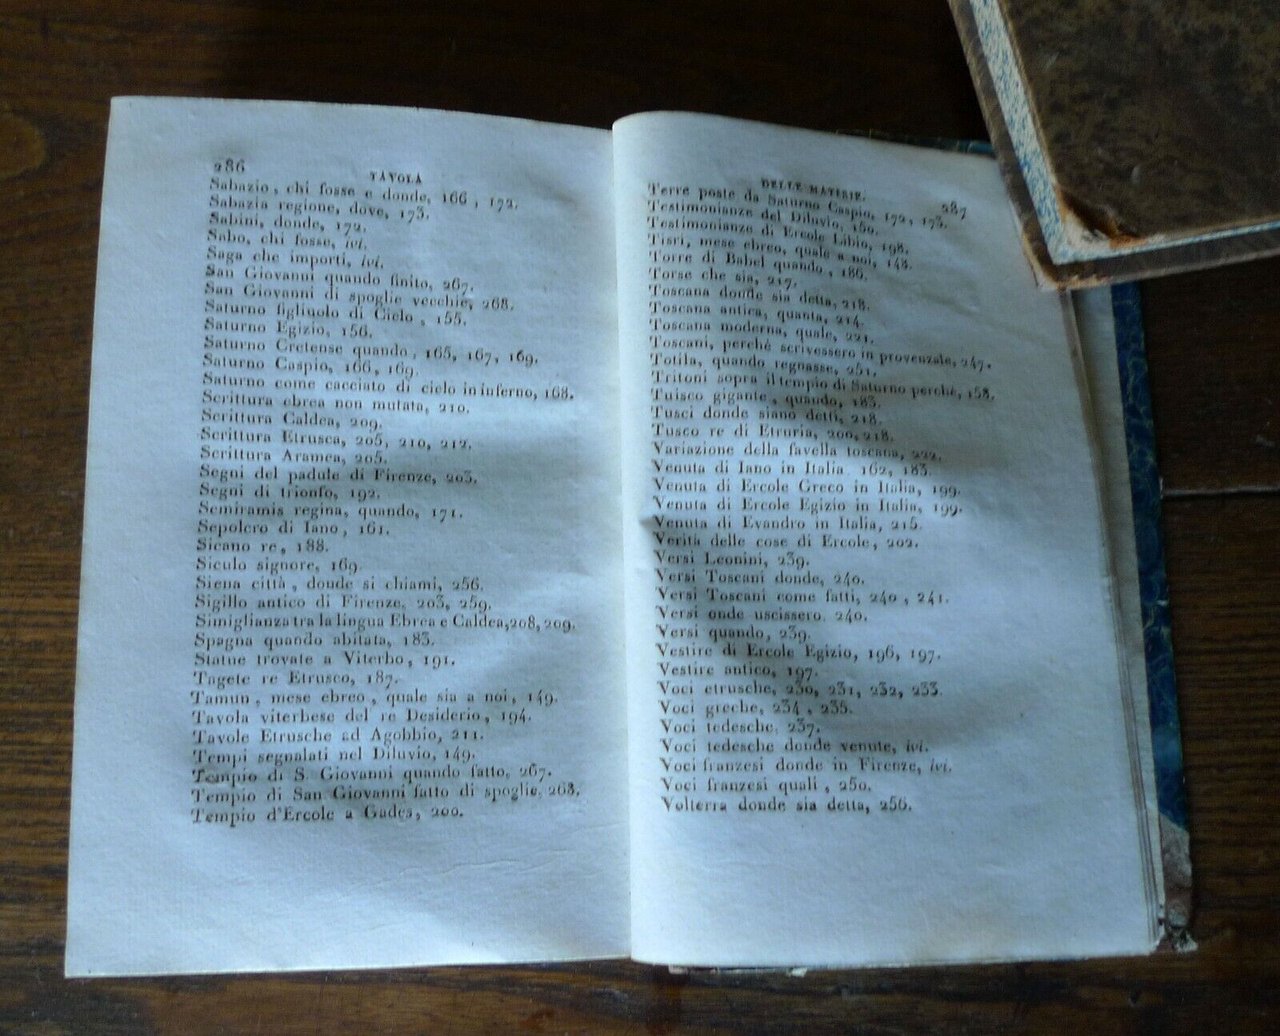 286
TAVOLA
Sabazio, chi fosse e donde, 166, 172.
Sabazia regione, dove, 173.
Sabini, donde, 172.
Sabo, chi fosse, ivi.
Saga che importi, ivi.
San Giovanni quando finito, 267.
San Giovanni di spoglie vecchie, 268.
Saturno figliuolo di Cielo, 155.
Saturno Egizio, 156.
Saturno Cretense quando, 165, 167, 169.
Saturno Caspio, 166, 169.
Saturno come cacciato di cielo in inferno, 168.
Scrittura ebrea non mutata, 210.
Scrittura Caldea, 209.
Scrittura Etrusca, 205, 210, 212.
Scrittura Aramea, 205.
Segni del padule di Firenze, 203.
Segni di trionfo, 192.
Semiramis regina, quando, 171.
Sepolcro di Iano, 161.
Sicano re, 188.
Siculo signore, 169.
Siena città, donde si chiami, 256.
Sigillo antico di Firenze, 203, 259.
Simiglianza tra la lingua Ebrea e Caldea, 208, 209.
Spagna quando abitata, 183.
Statue trovate a Viterbo, 191.
Tagete re Etrusco, 187.
Tamun, mese ebreo, quale sia a noi, 149.
Tavola viterbese del re Desiderio, 194.
Tavole Etrusche ad Agobbio, 211.
Tempi segnalati nel Diluvio, 149.
Tempio di S. Giovanni quando fatto, 267.
Tempio di San Giovanni fatto di spoglie, 268.
Tempio d'Ercole a Gades, 200.
DELLE MATERIE.
287
Terre poste da Saturno Caspio, 172, 173.
Testimonianze del Diluvio, 150.
Testimonianze di Ercole Libio, 198.
Tisri, mese ebreo, quale a noi, 148.
Torre di Babel quando, 186.
Torse che sia, 217.
Toscana donde sia detta, 218.
Toscana antica, quanta, 214.
Toscana moderna, quale, 221.
Toscani, perchè scrivessero in provenzale, 247.
Totila, quando regnasse, 251.
Tritoni sopra il tempio di Saturno perchè, 158.
Tuisco gigante, quando, 183.
Tusci donde siano detti, 218.
Tusco re di Etruria, 200, 218.
Variazione della favella toscana, 222.
Venuta di Iano in Italia 162, 183.
Venuta di Ercole Greco in Italia, 199.
Venuta di Ercole Egizio in Italia, 199.
Venuta di Evandro in Italia, 215.
Verità delle cose di Ercole, 202.
Versi Leonini, 239.
Versi Toscani donde, 240.
Versi Toscani come fatti, 240, 241.
Versi onde uscissero 240.
Versi quando, 239.
Vestire di Ercole Egizio, 196, 197.
Vestire antico, 197.
Voci etrusche, 230, 231, 232, 233.
Voci greche, 234, 235.
Voci tedesche, 237.
Voci tedesche donde venute, ivi.
Voci franzesi donde in Firenze, ivi.
Voci franzesi quali, 250.
Volterra donde sia detta, 256.